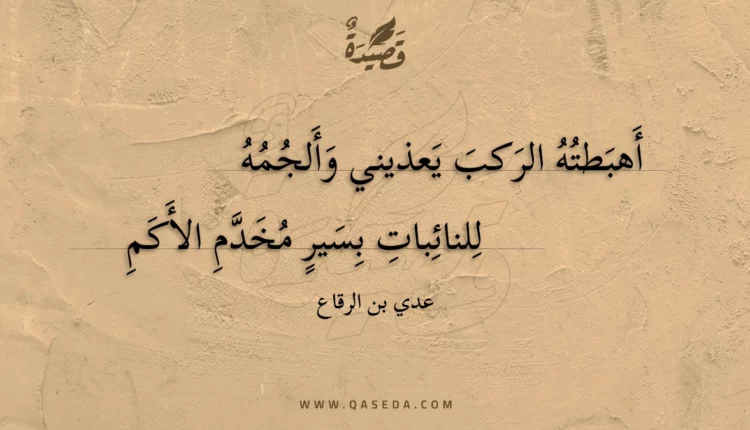 قَصِيدَةٌ
أَهبَطتُهُ الرَكبَ يَعذيني وَأَلجُمُهُ
لِلنائِباتِ بِسَيرٍ مُخَدَّمِ الأَكَمِ
عدي بن الرقاع
WWW.QASEDA.COM